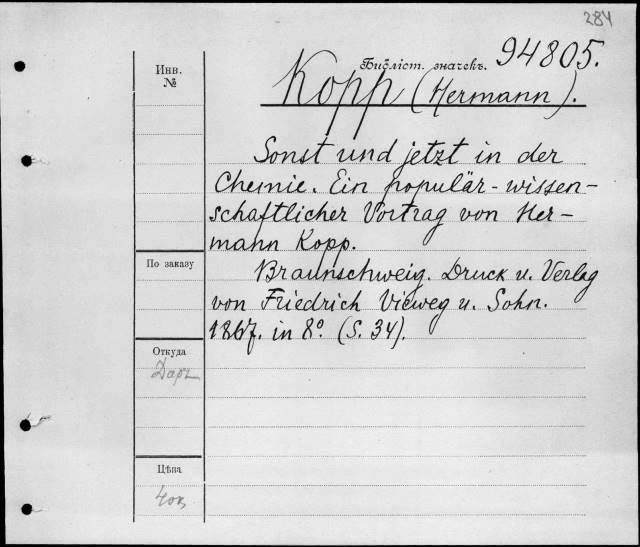 284
Библіот. значекъ. 94805.
Инв.
№
Kopp (Hermann).
Sonst und jetzt in der
Chemie. Ein populär-wissen-
schaftlicher Vortrag von Her-
mann Kopp.
По заказу
Braunschweig. Druck u. Verlag
von Friedrich Vieweg u. Sohn.
1867. in 8º. (S. 34).
Откуда
Даръ
Цѣна